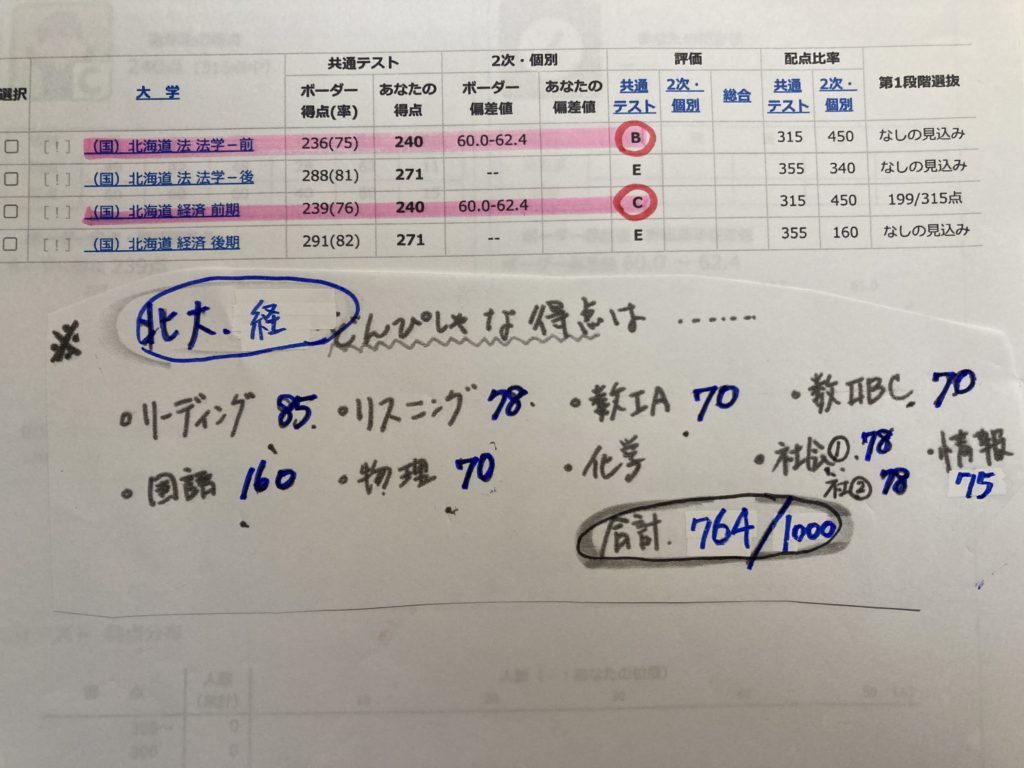 共通テスト 2次・個別 評価 配点比率
選択 大 学 ボーダー得点(率) あなたの得点 ボーダー偏差値 あなたの偏差値 共通テスト 2次・個別 総合 共通テスト 2次・個別 第1段階選抜
[!] (国)北海道 法 法学－前 236(75) 240 60.0-62.4 B 315 450 なしの見込み
[!] (国)北海道 法 法学－後 288(81) 271 -- E 355 340 なしの見込み
[!] (国)北海道 経済 前期 239(76) 240 60.0-62.4 C 315 450 199/315点
[!] (国)北海道 経済 後期 291(82) 271 -- E 355 160 なしの見込み
※ 北大.経 どんぴしゃな得点は ‥‥‥‥
・リーディング 85. ・リスニング 78. ・数ⅠA 70 ・数ⅡBC. 70
・国語 160 ・物理 70 ・化学 ・社会① 78 ・情報 75
社② 78
合計. 764/1000